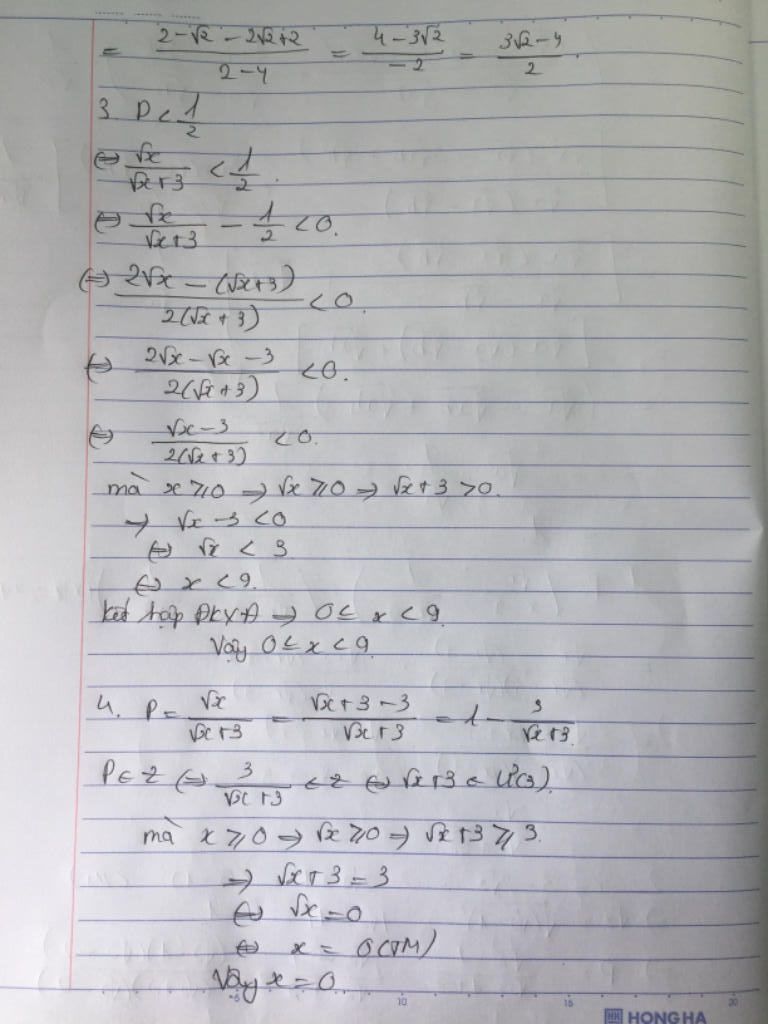 = (2-√2 - 2√2+2)/(2-4) = (4-3√2)/(-2) = (3√2-4)/2.
3. P < 1/2
⇔ √x/(√x+3) < 1/2.
⇔ √x/(√x+3) - 1/2 < 0.
⇔ (2√x - (√x+3))/(2(√x+3)) < 0.
⇔ (2√x - √x - 3)/(2(√x+3)) < 0.
⇔ (√x-3)/(2(√x+3)) < 0.
mà x ≥ 0 ⇒ √x ≥ 0 ⇒ √x+3 > 0.
→ √x - 3 < 0
⇔ √x < 3
⇔ x < 9.
kết hợp ĐKXĐ ⇒ 0 ≤ x < 9.
Vậy 0 ≤ x < 9
4. P = √x/(√x+3) = (√x+3-3)/(√x+3) = 1 - 3/(√x+3).
P ∈ Z ⇔ 3/(√x+3) ∈ Z ⇔ √x+3 ∈ Ư(3).
mà x ≥ 0 ⇒ √x ≥ 0 ⇒ √x+3 ≥ 3.
⇒ √x+3 = 3
⇔ √x = 0
⇔ x = 0 (TM)
Vậy x = 0
5 10 15 20
HH HONG HA